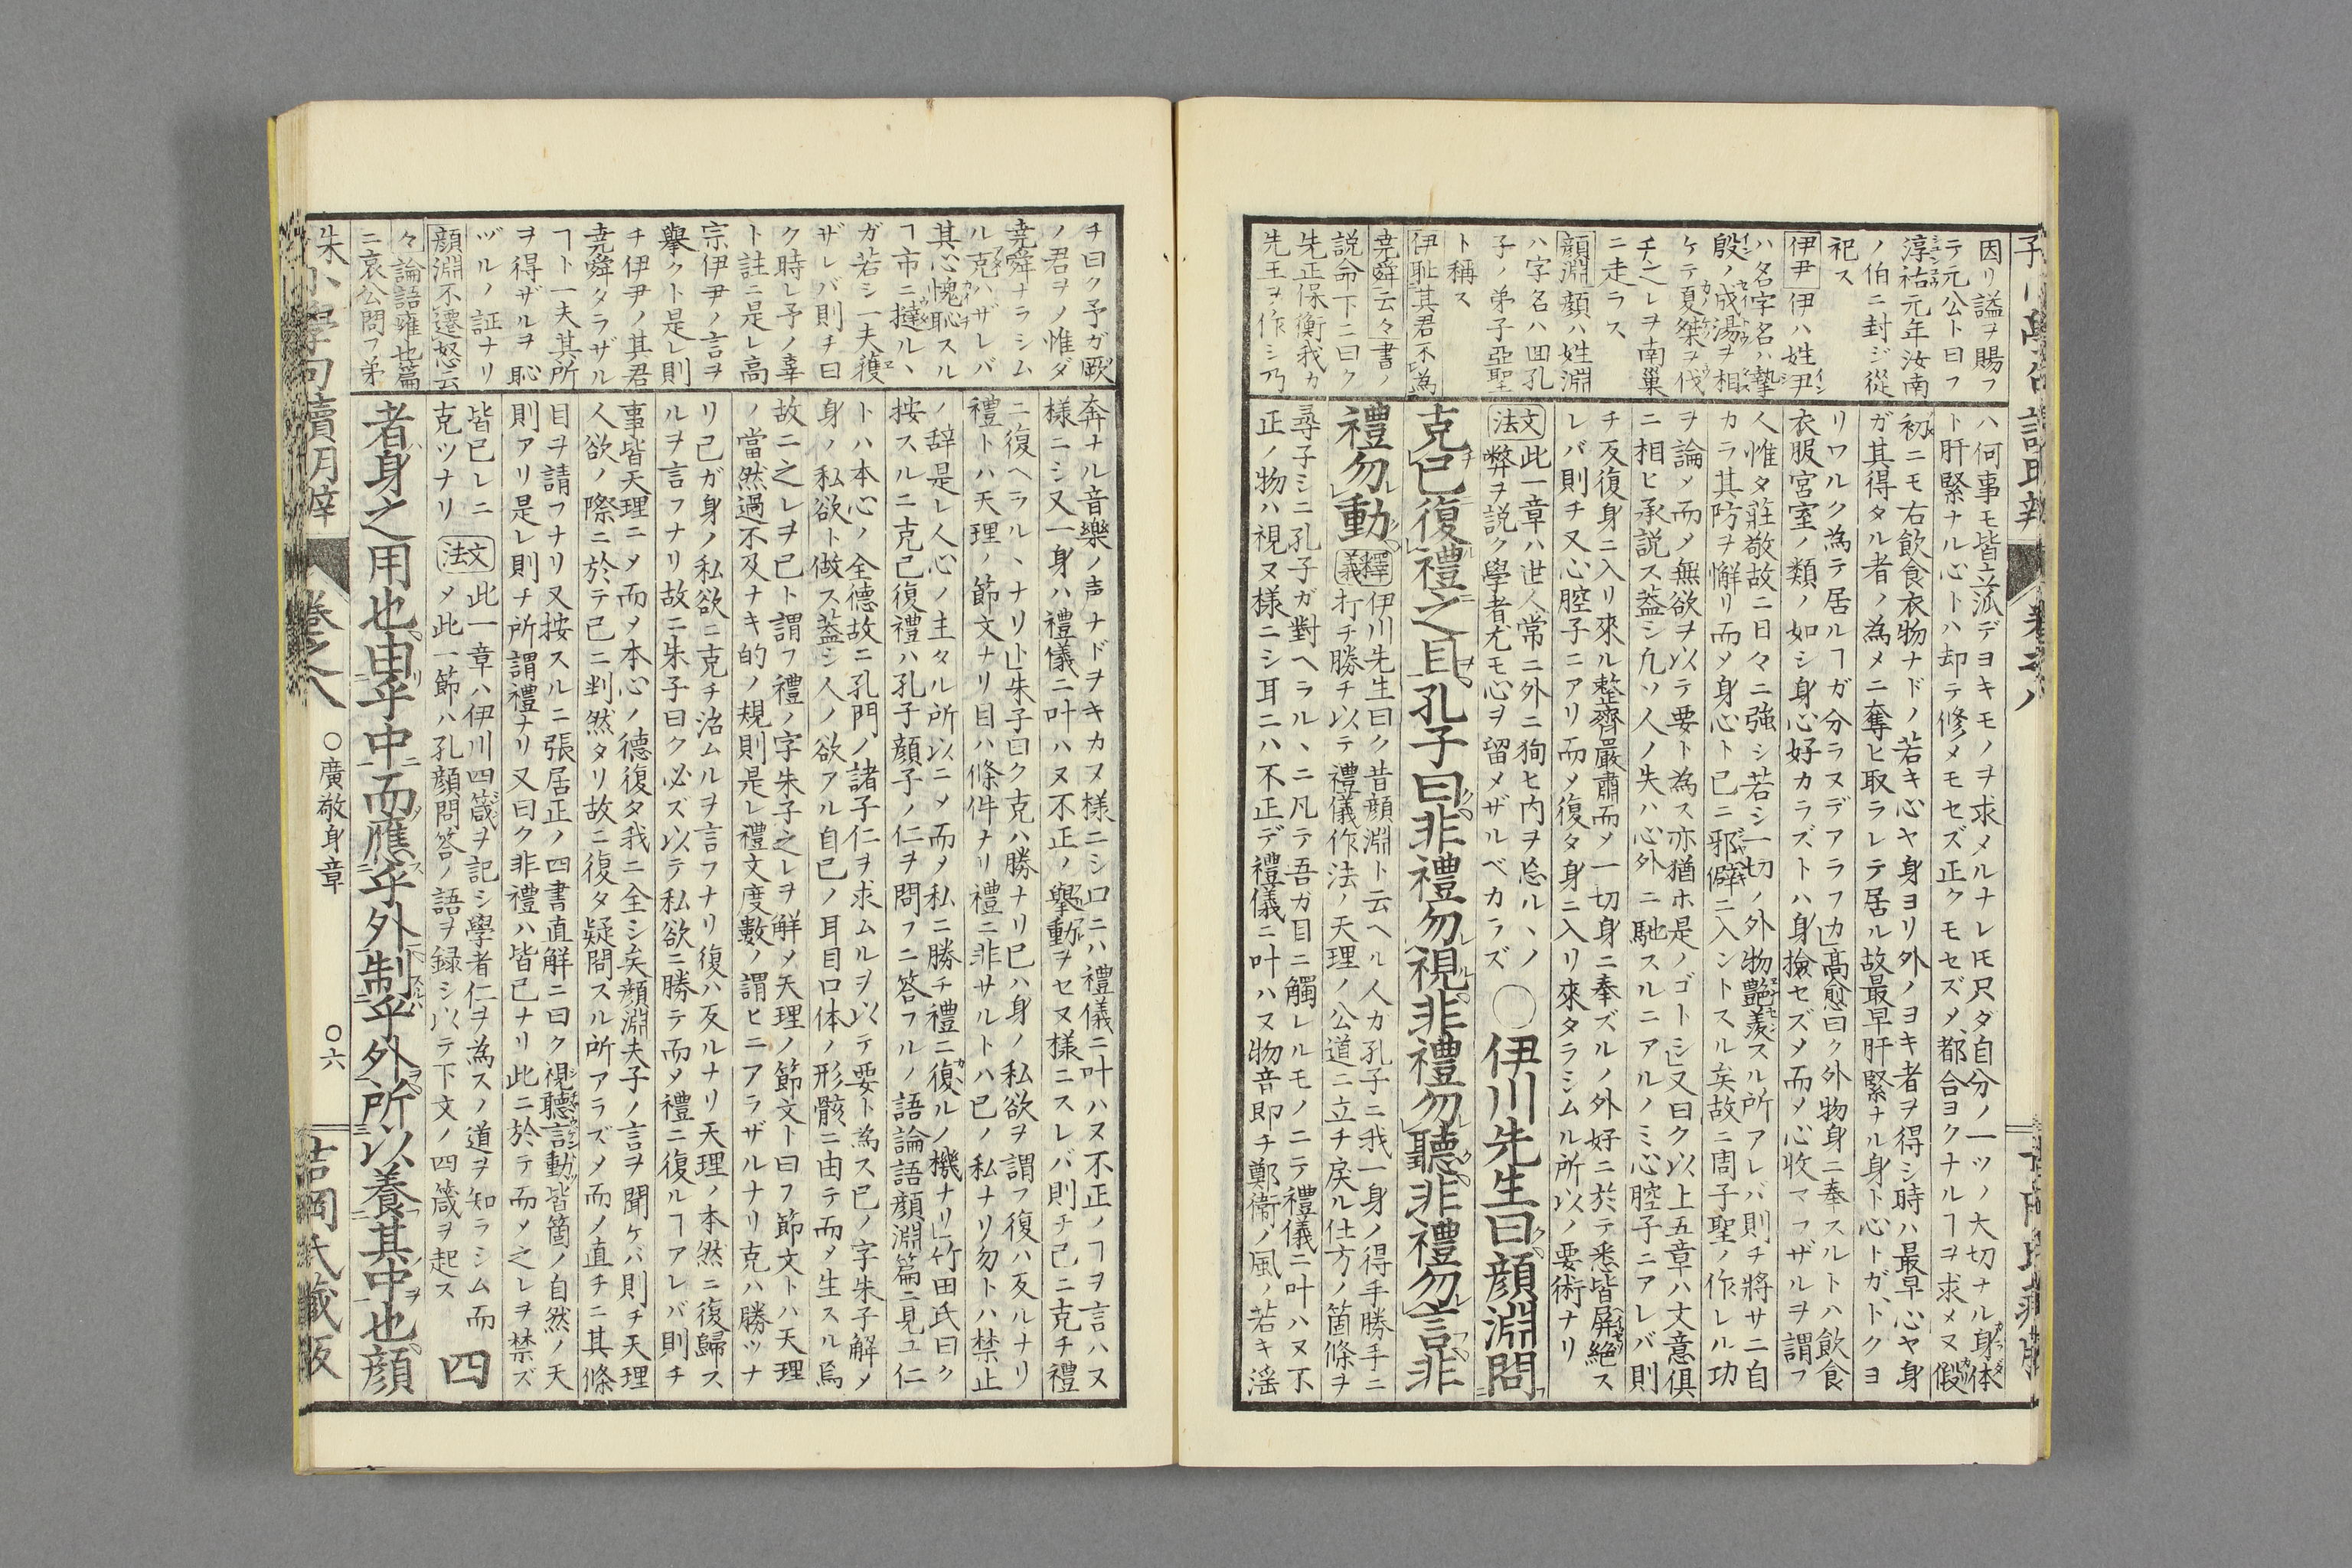 因リ謚ヲ賜フ
ラ元公ト曰フ
淳祐元年汝南
ノ伯ニ封ジ從
祀ス
伊尹伊ハ姓尹
ハ名字名ハ摯
殷ノ成湯ヲ相
ケテ夏桀ヲ伐
チ之レヲ南巢
ニ走ラス
顔淵顔ハ姓淵
ハ字名ハ囬孔
子ノ弟子亞聖
ト稱ス
伊耻其君不為
堯舜云々書ノ
説命下ニ曰ク
先正保衡我カ
先王ヲ作シ乃
ハ何事モ皆立派デヨキモノヲ求メルナレ𪜈只ダ自分ノ一ツノ大切ナル身体
ト肝緊ナル心トハ却テ修メモセズ正クモセズメ都合ヨクナルヿヲ求メヌ假
初ニモ右飲食衣物ナドノ若キ心ヤ身ヨリ外ノヨキ者ヲ得シ時ハ最早心ヤ身
ガ其得タル者ノ為メニ奪ヒ取ラレテ居ル故最早肝緊ナル身ト心トガ、トクヨ
リワルク為テ居ルヿガ分ラヌデアラフカ」高愈曰ク外物身ニ奉スルトハ飲食
衣服宮室ノ類ノ如シ身心好カラズトハ身撿セズメ而メ心收マフザルヲ謂フ
人惟タ莊敬故ニ日々ニ強シ若シ一切ノ外物艷羨スル所アレバ則チ將サニ自
カラ其防ヲ懈リ而メ身心ト已ニ邪僻ニ入ントスル矣故ニ周子聖ノ作レル功
ヲ論メ而メ無欲ヲ以テ要ト為ス亦猶ホ是ノゴトシ」又曰ク以上五章ハ大意俱
ニ相ヒ承説ス蓋シ凢ソ人ノ失ハ心外ニ馳スルニアルノミ心腔子ニアレバ則
チ反復身ニ入リ來ル整齊嚴肅而メ一切身ニ奉ズルノ外好ニ於テ悉皆屏絶ス
レバ則チ又心腔子ニアリ而メ復タ身ニ入リ來タラシムル所以ノ要術ナリ
文法此一章ハ世人常ニ外ニ狥ヒ内ヲ忘ル、ノ
弊ヲ説ク學者尤モ心ヲ留メザルベカラズ
〇伊川先生曰顔淵問
克己復禮之目孔子曰非禮勿視非禮勿聽非禮勿言非
禮勿動
釋義伊川先生曰ク昔顔淵ト云ヘル人カ孔子ニ我一身ノ得手勝手ニ
打チ勝チ以テ禮儀作法ノ天理ノ公道ニ立チ戻ル仕方ノ箇條ヲ
尋子シニ孔子ガ對ヘラル、ニ凡テ吾ガ目ニ觸レルモノニテ禮儀ニ叶ハヌ不
正ノ物ハ視ヌ樣ニシ耳ニハ不正デ禮儀ニ叶ハヌ物音即チ鄭衞ノ風ノ若キ滛
チ曰ク予ガ厥
ノ君ヲノ惟ダ
堯舜ナラシム
ル克ハザレバ
其心愧恥スル
ヿ市ニ撻ル丶
ガ若シ一夫獲
ザレバ則チ曰
ク時レ予ノ辜
ト註ニ是レ高
宗伊尹ノ言ヲ
擧クト是レ則
チ伊尹ノ其君
堯舜タラザル
ヿト一夫其所
ヲ得ザルヲ恥
ヅルノ証ナリ
顔淵不遷怒云
々論語雍也篇
ニ哀公問フ弟
奔ナル音樂ノ声ナドヲキカヌ樣ニシ口ニハ禮儀ニ叶ハヌ不正ノヿヲ言ハヌ
樣ニシ又一身ハ禮儀ニ叶ハヌ不正ノ擧動ヲセヌ樣ニスレバ則チ己ニ克チ禮
ニ復ヘラル、ナリ」朱子曰ク克ハ勝ナリ已ハ身ノ私欲ヲ謂フ復ハ反ルナリ
禮トハ天理ノ節文ナリ目ハ條件ナリ禮ニ非サルトハ已ノ私ナリ勿トハ禁止
ノ辞是レ人心ノ主タル所以ニメ而メ私ニ勝チ禮ニ復ルノ機ナリ」竹田氏曰ク
按スルニ克己復禮ハ孔子顔子ノ仁ヲ問フニ答フルノ語論語顔淵篇ニ見ユ仁
トハ本心ノ全德故ニ孔門ノ諸子仁ヲ求ムルヲ以テ要ト為ス已ノ字朱子解メ
身ノ私欲ト做ス蓋シ人ノ欲アル自已ノ耳目口体ノ形骸ニ由テ而メ生スル烏
故ニ之レヲ已ト謂フ禮ノ字朱子之レヲ解メ天理ノ節文ト曰フ節文トハ天理
ノ當然過不及ナキ的ノ規則是レ禮文度數ノ謂ヒニアラザルナリ克ハ勝ツナ
リ己ガ身ノ私欲ニ克チ治ムルヲ言フナリ復ハ反ルナリ天理ノ本然ニ復歸ス
ルヲ言フナリ故ニ朱子曰ク必ズ以テ私欲ニ勝テ而メ禮ニ復ルヿアレバ則チ
事皆天理ニメ而メ本心ノ德復タ我ニ全シ矣顔淵夫子ノ言ヲ聞ケバ則チ天理
人欲ノ際ニ於テ已ニ判然タリ故ニ復タ疑問スル所アラズメ而メ直チニ其條
目ヲ請フナリ又按スルニ張居正ノ四書直解ニ曰ク視聽言動皆箇ノ自然ノ天
則アリ是レ則チ所謂禮ナリ又曰ク非禮ハ皆已ナリ此ニ於テ而メ之レヲ禁ズ
皆已レニ
克ツナリ
文法此一章ハ伊川四箴ヲ記シ學者仁ヲ為スノ道ヲ知ラシム而
メ此一節ハ孔顔問答ノ語ヲ録シ以テ下文ノ四箴ヲ起ス
四
者身之用也由乎中而應乎外制乎外所以養其中也顔
朱小學句讀明辯
卷之八
〇廣敬身章
〇六
吉岡氏藏版